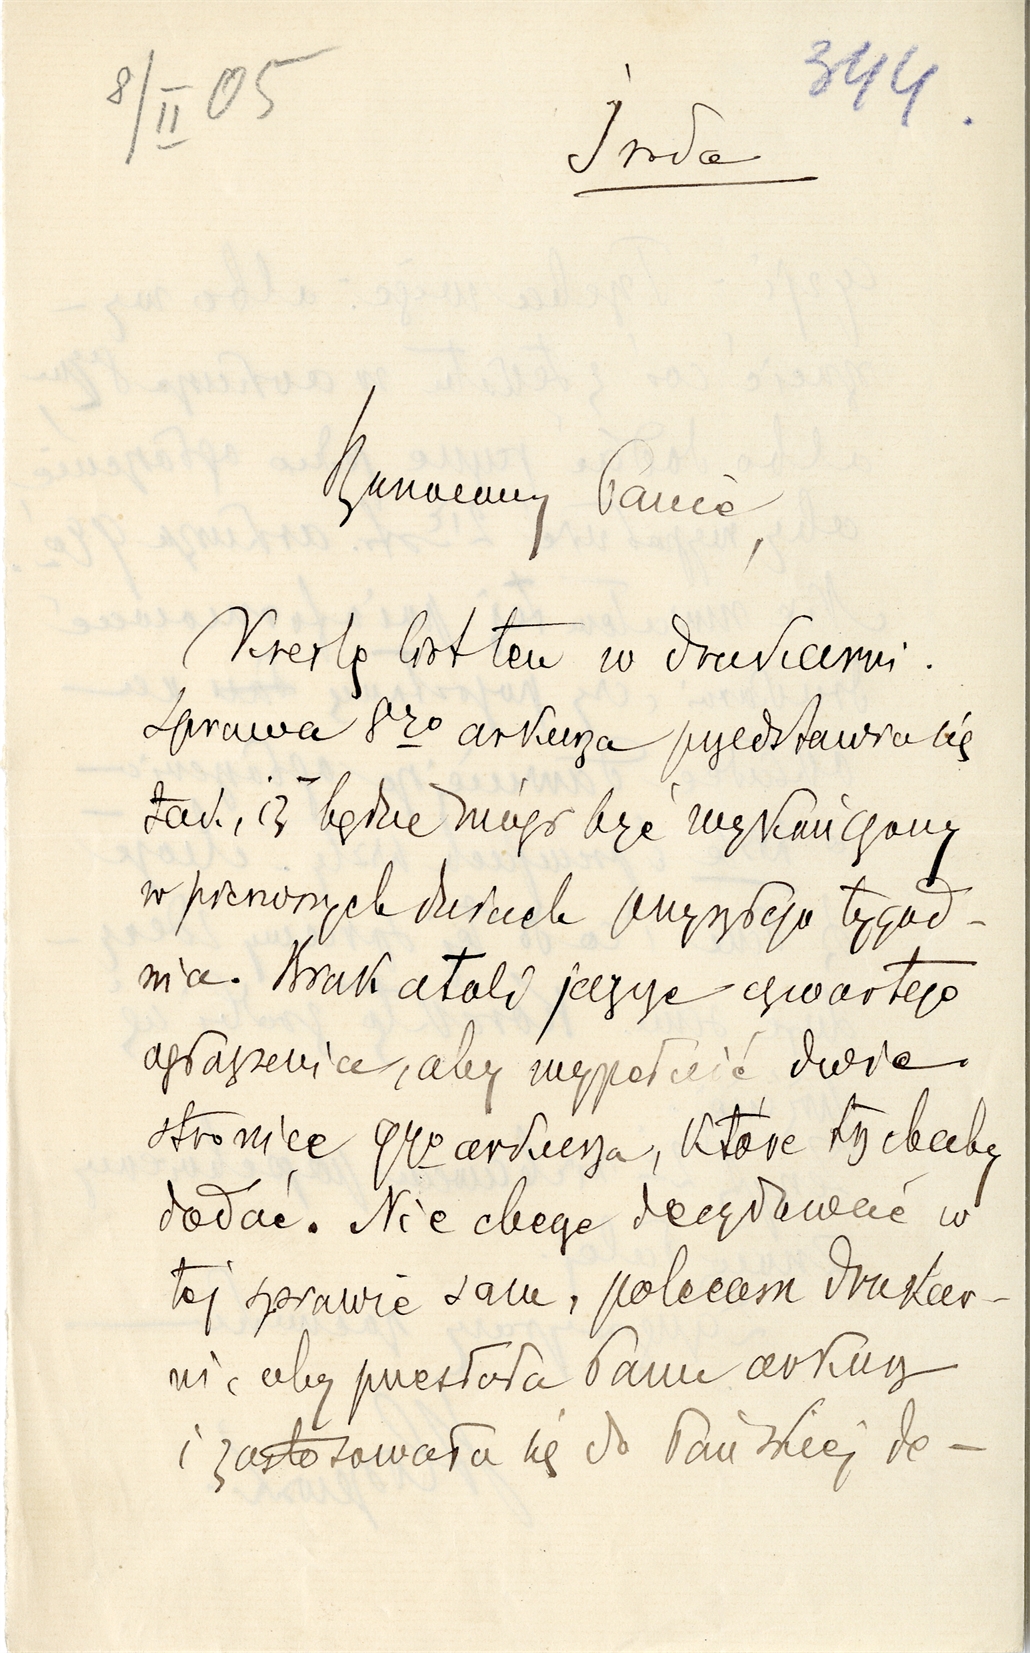 8/II 05
344.
Środa
Szanowny Panie,
Kreślę list ten w drukarni.
Sprawa 8go arkusza przedstawia się
tak, iż będzie mógł być wykończony
w pierwszych dniach przyszłego tygod-
nia. Brak atoli jeszcze czwartego
ogłoszenia, aby wypełnić dwie
stronice 9go arkusza, które trzebaby
dodać. Nie chcę decydować w
tej sprawie sam, polecam drukar-
ni, aby przesłała Panu arkusz
i zastosowała się do Pańskiej de-